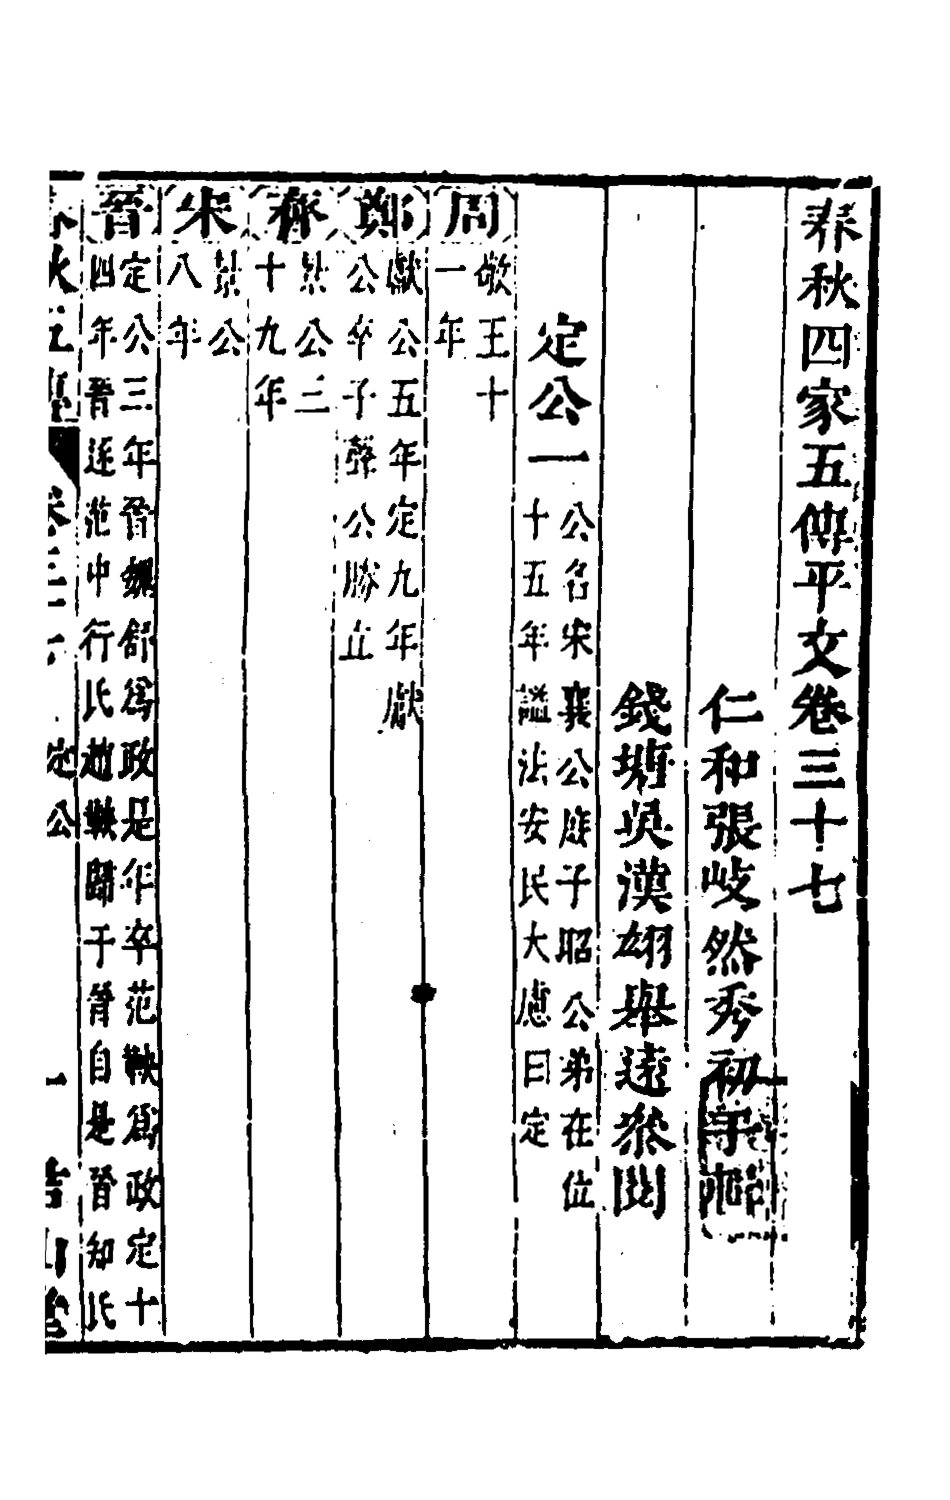 春秋四家五傳平文卷三十七
仁和張岐然秀初
錢塘吳漢翊舉遠叅閱
定公一
公名宋襄公庶子昭公弟在位
十五年謚法安民大慮曰定
周
敬王十
一年
鄭
獻公五年定九年獻
公卒子聲公勝立
齊
景公三
十九年
宋
景公
八年
晉
定公三年晉魏舒爲政是年卒范鞅爲政定十
四年晉逐范中行氏趙鞅歸于晉自是晉知氏
定公 一